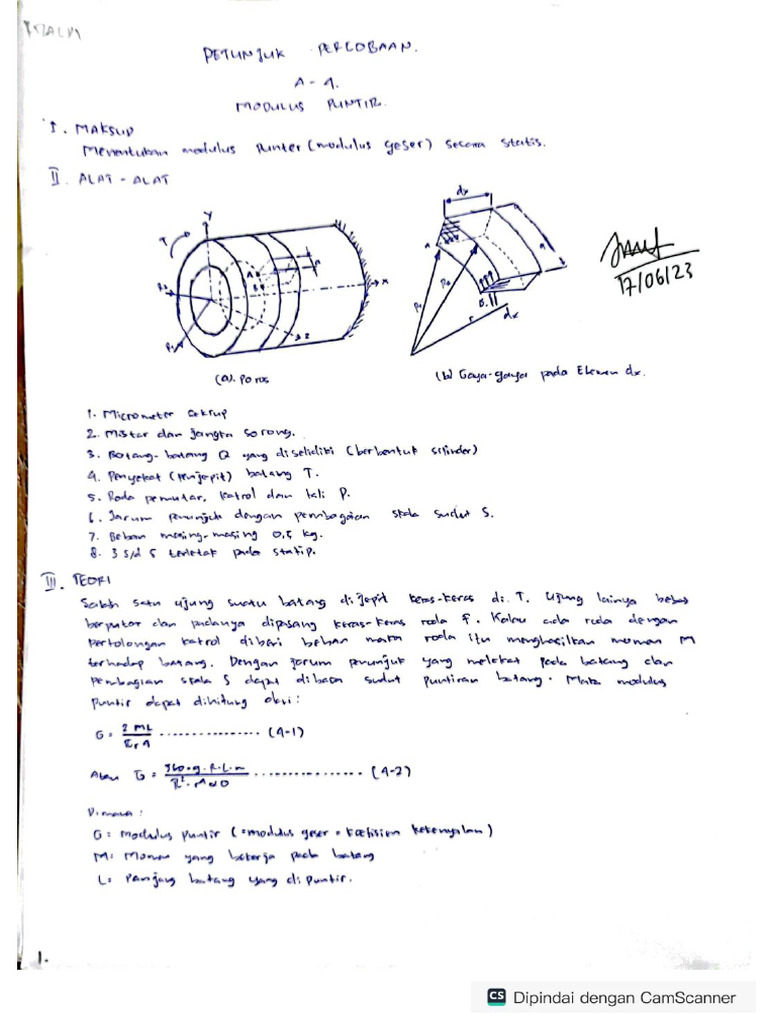 PETUNJUK PERCOBAAN.
A-4.
MODULUS PUNTIR.
I. MAKSUD
Menentukan modulus Punter (modulus geser) secara statis.
II. ALAT-ALAT
Y
T
x
z
(a). Poros
dx
A
r
dx
(b) Gaya-gaya pada Elemen dx.
17/06/23
1. Micrometer sekrup
2. Mistar dan jangka sorong.
3. Batang-batang Q yang diselidiki (berbentuk silinder)
4. Penyekat (penjepit) batang T.
5. Roda pemutar, katrol dan tali P.
6. Jarum penunjuk dengan pembagian skala sudut S.
7. Beban masing-masing 0,5 kg.
8. 3 s/d 5 terletak pada statip.
III. TEORI
Salah satu ujung suatu batang dijepit keras-keras di. T. Ujung lainya bebas
berputar dan padanya dipasang keras-keras roda F. Kalau ada roda dengan
Pertolongan katrol diberi beban maka roda itu menghasilkan momen M
terhadap batang. Dengan jarum penunjuk yang melekat pada batang dan
Pembagian skala S dapat dibaca sudut Puntiran batang. Maka modulus
Puntir dapat dihitung dari:
G = 2 ML ................. (4-1)
Atau G = 360.g.R.L.m ................. (4-2)
Dimana:
G: modulus puntir (=modulus geser = Kekenyalan)
M: Momen yang bekerja pada batang
L: Panjang batang yang di Puntir.
1.
CS Dipindai dengan CamScanner